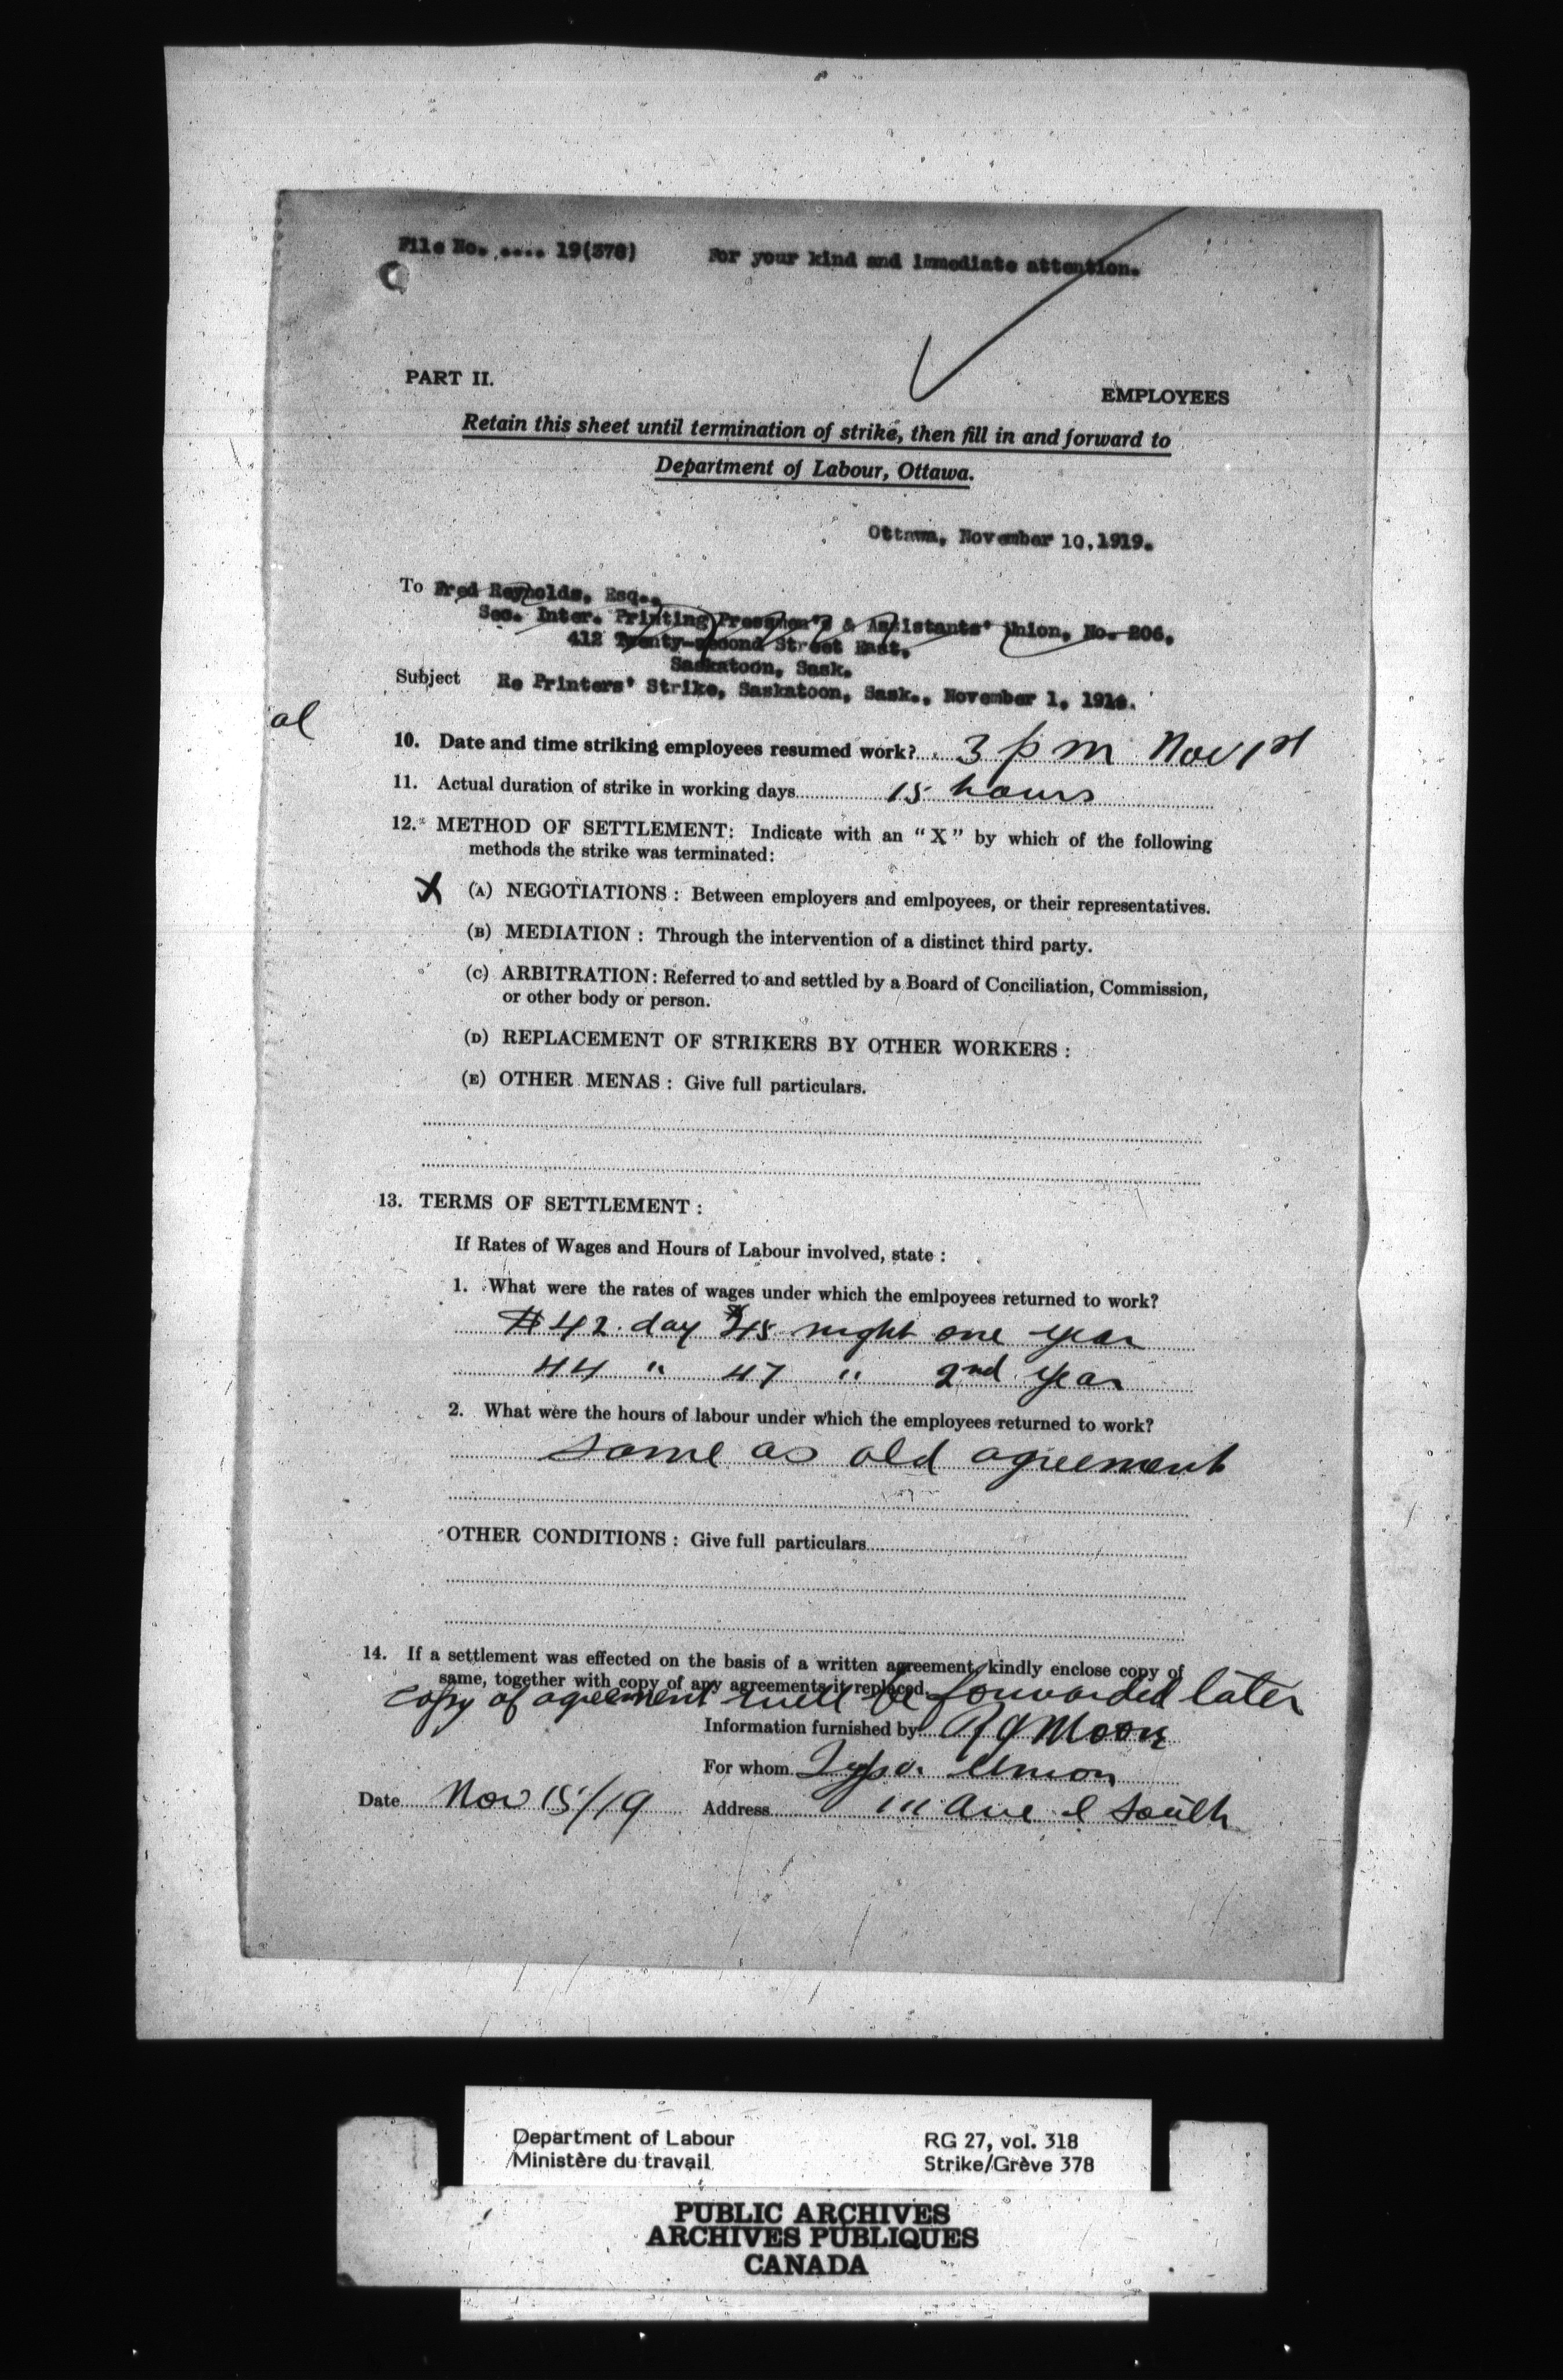 File No. .... 19(378) For your kind and immediate attention.
C
PART II.
EMPLOYEES
Retain this sheet until termination of strike, then fill in and forward to
Department of Labour, Ottawa.
Ottawa, November 10, 1919.
To Fred Reynolds, Esq.,
Sec. Inter. Printing Pressmen's & Assistants' Union, No. 206,
412 Twenty-second Street East,
Saskatoon, Sask.
Subject Re Printers' Strike, Saskatoon, Sask., November 1, 1919.
al
10. Date and time striking employees resumed work?.. 3 pm Nov 1st
11. Actual duration of strike in working days 15 hours
12. METHOD OF SETTLEMENT: Indicate with an "X" by which of the following
methods the strike was terminated:
X (A) NEGOTIATIONS : Between employers and emlpoyees, or their representatives.
(B) MEDIATION : Through the intervention of a distinct third party.
(C) ARBITRATION: Referred to and settled by a Board of Conciliation, Commission,
or other body or person.
(D) REPLACEMENT OF STRIKERS BY OTHER WORKERS :
(E) OTHER MENAS : Give full particulars.
13. TERMS OF SETTLEMENT :
If Rates of Wages and Hours of Labour involved, state :
1. What were the rates of wages under which the emlpoyees returned to work?
$42 day $45 night one year
44 " 47 " 2nd year
2. What were the hours of labour under which the employees returned to work?
same as old agreement
OTHER CONDITIONS : Give full particulars
14. If a settlement was effected on the basis of a written agreement, kindly enclose copy of
same, together with copy of any agreements it replaced.
copy of agreement will be forwarded later
Information furnished by R J Moore
For whom Typo. Union
Date Nov 15/19 Address 111 Ave I South
Department of Labour RG 27, vol. 318
Ministère du travail Strike/Grève 378
PUBLIC ARCHIVES
ARCHIVES PUBLIQUES
CANADA